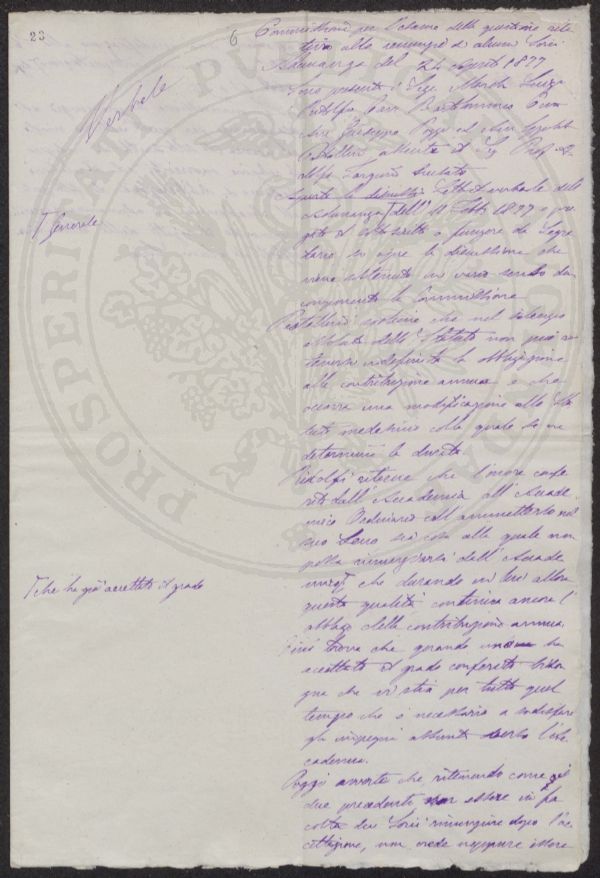 23
6
Verbale
Commissione per l'esame della questione rela
tiva alla rinunzia di alcuni Socii
Adunanza del 24 1877
Sono presenti i Sigg. Luigi
Ridolfi Bartolommeo
Giuseppe Poggi ed
Pestellini assente il Sig. Prof.
Targioni
Aperta la discussione letto il verbale della
Adunanza dell' 11 1877 e
il sottoscritto a fungere da Segre
tario si apre la discussione che
viene in vario senso dai
componenti la Commissione
⌈ Generale
Pestellini che nel silenzio
dello Statuto non può ri
tenersi indefinita la obbligazione
alla contribuzione annua e che
occorra una modificazione allo Sta
tuto medesimo colla quale se ne
determini la durata.
Ridolfi ritiene che l'onore confe
rito dall'Accademia all'Accade
mico Ordinario all'ammetterlo nel
suo Seno sia cosa alla quale non
possa rinunziarsi dall'Accade
mico⌈, che durando in lui allora
questa qualità continua ancora l'
obbligo della contribuzione annua.
⌈ che ha già accettato il grado
trova che quando uno ha
accettato il grado conferito biso
gna che vi stia per tutto quel
tempo che è necessario a sodisfare
gli impegni assunti verso l'Ac
cademia.
Poggi avverte che ritenendo come gli
due precedenti non essere in fa
coltà dei Socii rinunziare dopo l'ac
cettazione, non crede neppure essere